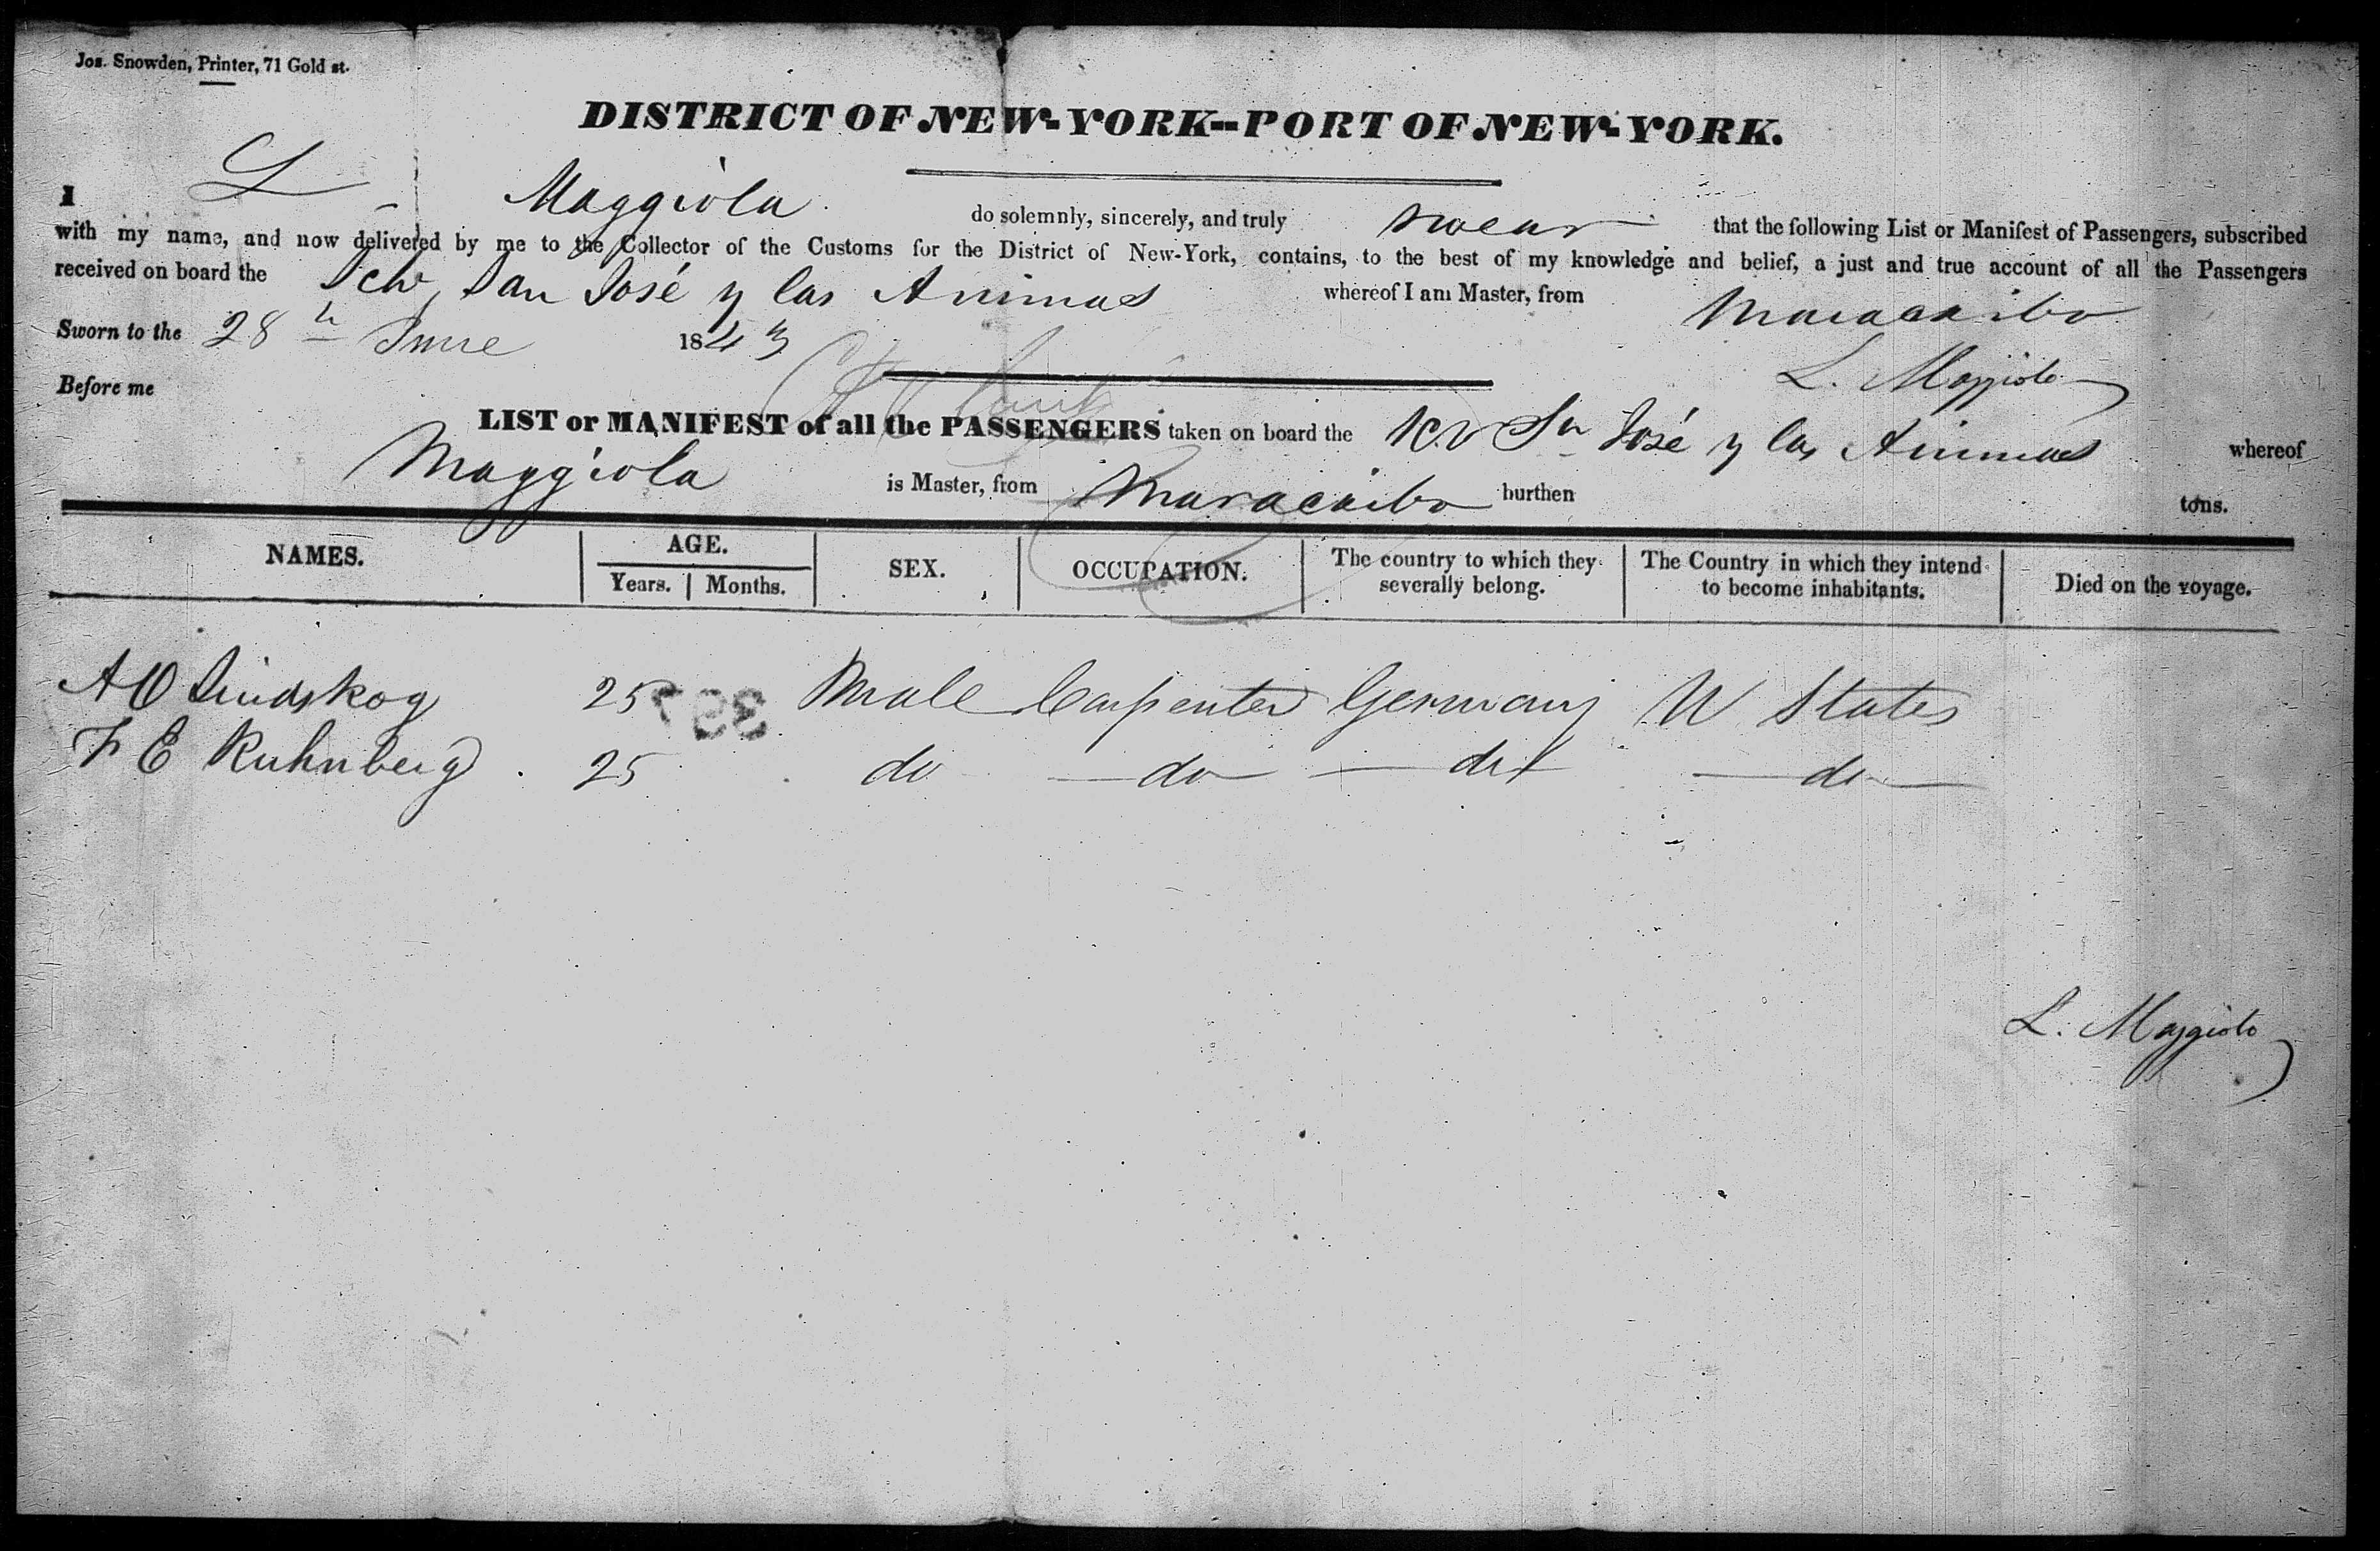 Jos. Snowden, Printer, 71 Gold st.
DISTRICT OF NEW-YORK--PORT OF NEW-YORK.
I L Maggiola do solemnly, sincerely, and truly swear that the following List or Manifest of Passengers, subscribed
with my name, and now delivered by me to the Collector of the Customs for the District of New-York, contains, to the best of my knowledge and belief, a just and true account of all the Passengers
received on board the Schr San José y las Animas whereof I am Master, from Maracaibo
Sworn to the 28th June 1843
L. Maggiolo
Before me
LIST or MANIFEST of all the PASSENGERS taken on board the Sn José y las Animas whereof
Maggiola is Master, from Maracaibo burthen tons.
NAMES. AGE. SEX. OCCUPATION. The country to which they severally belong. The Country in which they intend to become inhabitants. Died on the voyage.
Years. Months.
A O Lindskog 25 Male Carpenter Germany U States
F E Ruhnberg 25 do do do do
L. Maggiolo